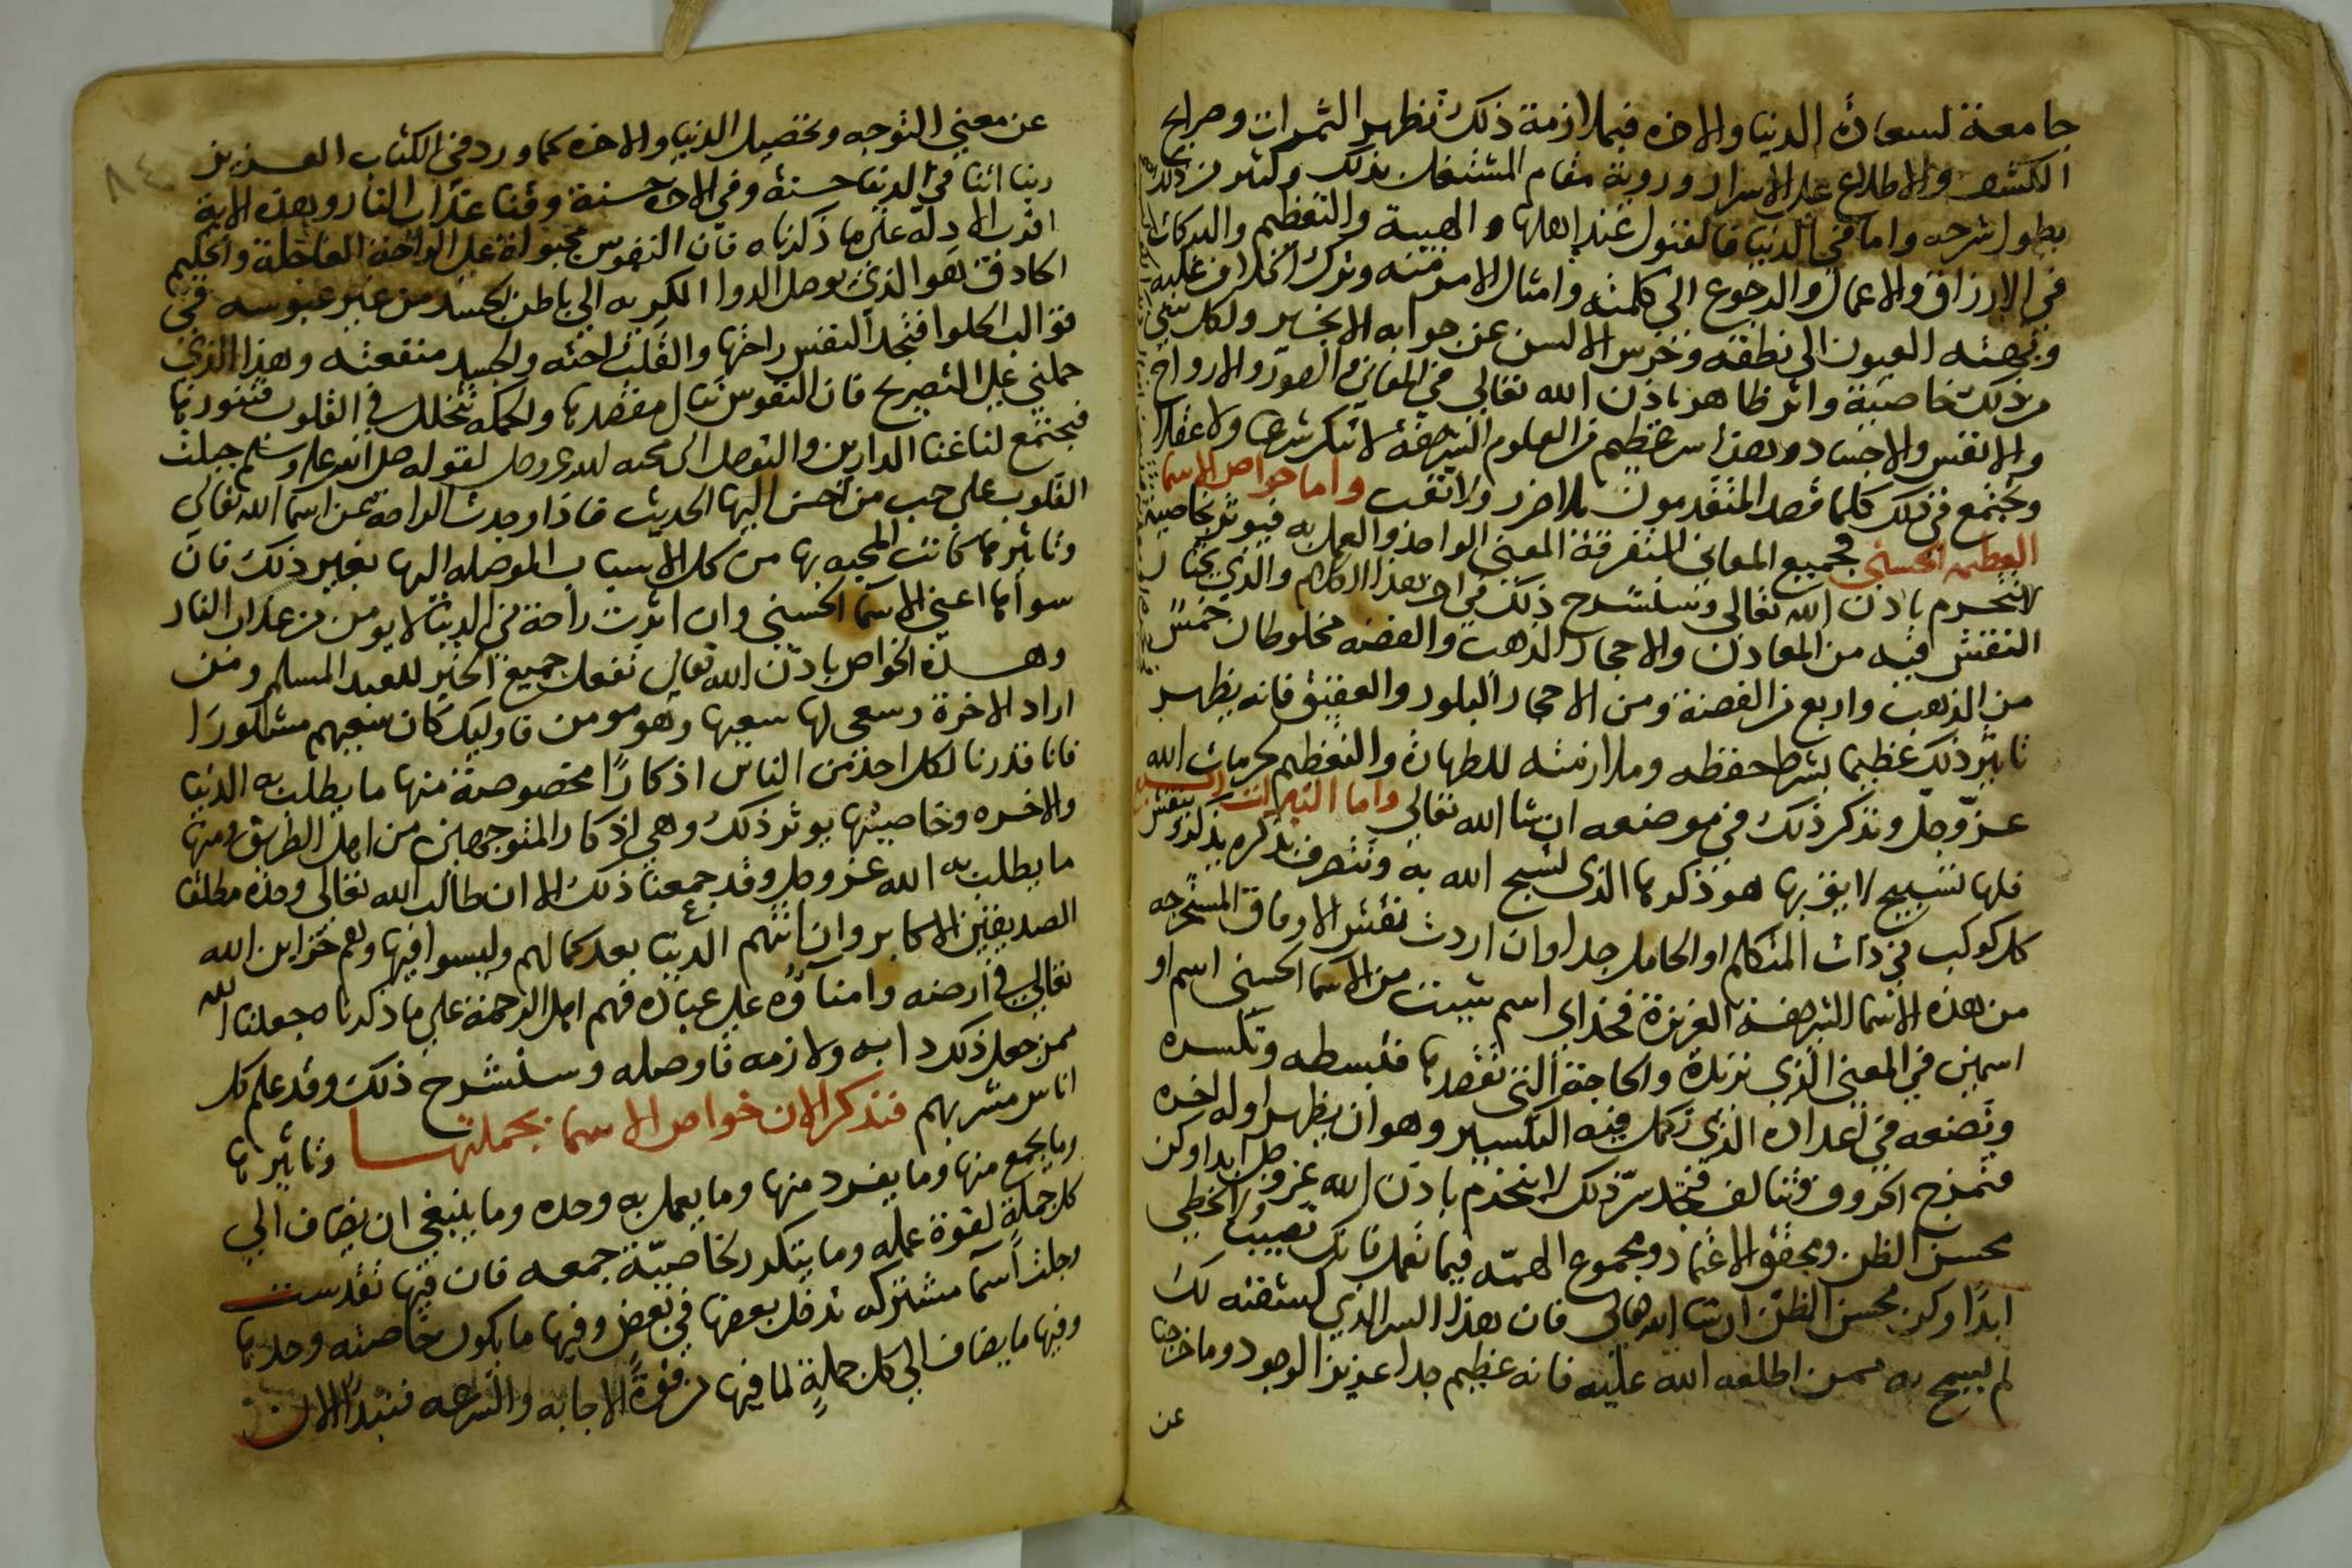 جامعة لسعادة الدنيا والاخره فبملازمة ذلك تظهر الثمرات وصرايح
الكشف والاطلاع على الاسرار وروية مقام المشتغلين بذلك وكثير من ذلك
يطول شرحه واما في الدنيا فالقبول عند اهلها والهيبة والتعظيم والبركات
في الارزاق والاعمال والرجوع الي كلمته وامتثال الامر منه وترك الخلاف عليه
العيون الي نطقه وخرس الالسن عن جوابه الا بخير ولكل شي
من ذلك خاصية واثر ظاهر باذن الله تعالي في المعاني والصور والارواح
والانفس والاجساد وهذا سر عظيم من العلوم الشريفة لا تنكر شرعا ولا عقلا
ويجتمع في ذلك كلما قصد المتقدمون بلا ضرر ولا تعب واما خواص الاسما
العظيمه الحسني فجميع المعاني المتفرقة المعني الواحد والعمل به فيوثر بخاصية
لا ينخرم باذن الله تعالي وسنشرح ذلك في اخر هذا الكلام والذي يختار
النقش فيه من المعادن والاحجار الذهب والفضه مخلوطان خمس
من الذهب واربع من الفضة ومن الاحجار البلور والعقيق فانه يظهر
تاثير ذلك عظيما بشرط حفظه وملازمته للطهارة والتعظيم لحرمات الله
عز وجل ونذكر ذلك في موضعه ان شا الله تعالي واما النيرات السبعة
فلها تسبيح لايق بها هو ذكرها الذي تسبح الله به وتتصرف بذكره بذلك ينقش
كل كوكب في ذات المتكلم او الحامل جدا وان اردت نقش الاوفاق المستخرجه
من هذه الاسما الشريفة العزيزة فخذ اي اسم شيت من الاسما الحسني اسم او
اسمين في المعني الذي تريده والحاجة التي تقصدها فتبسطه وتكسره
وتضعه في اعداده الذي تكمل فيه التكسير وهو ان يظهر اوله اخره
فتمزج الحروف وتتالف فتجد سر ذلك لا ينخرم باذن الله عز وجل ابدا وكن
محسن الظن ومحقق الاعتماد ومجموع الهمه فيما تعمل فانك تصيب ولا تخطي
ابدا وكن محسن الظن ان شا الله تعالي فان هذا السر الذي كشفته لك
لم يبيح به ممن اطلعه الله عليه فانه عظيم جدا عزيز الوجود وما خرجنا
عن
عن معني التوجه وتحصيل الدنيا والاخره كما ورد في الكتاب العزيز
ربنا اتنا في الدنيا حسنة وفي الاخره حسنة وقنا عذاب النار وهذه الاية
اقرب الادلة علي ما ذكرناه فان النفوس مجبولة علي الراحة العاجلة والحكيم
الحاذق هو الذي يوصل الدوا الكريه الي باطن الجسد من غير عبوسه في
قوالب الحلوا فتجد النفس راحتها والقلب راحته والجسد منفعته وهذا الذي
حملني علي التصريح فان النفوس تنال مقصدها والحكمه تتخلل في القلوب فتنورها
فيجتمع لنا غنا الدارين والتوصل الي محبه الله عز وجل لقوله صلى الله عليه وسلم جبلت
القلوب على حب من احسن اليها الحديث فاذا وجدت الراحة من اسما الله تعالي
وتاثيرها كانت المحبه بها من كل الاسباب الموصله اليها بغير ذلك فان
سواها اعني الاسما الحسني وان اثرت راحة في الدنيا لا يومن من عذاب النار
وهذه الخواص باذن الله تعالي تفعل جميع الخير للعبد المسلم ومن
اراد الاخرة وسعى لها سعيها وهو مومن فاوليك كان سعيهم مشكورا
فانا قدرنا لكل احد من الناس اذكارا مخصوصة منها ما يطلب به الدنيا
والاخره وخاصيتها يوثر ذلك وهي اذكار المتوجهين من اهل الطريق ومنها
ما يطلب به الله عز وجل وقد جمعنا ذلك الا ان طالب الله تعالي وحده مطلقا
الصديقين الاكابر وان اتتهم الدنيا بعد كمالهم وليسوا فيها وهم خزاين الله
تعالي في ارضه وامناؤه على عباده فهم اهل الرحمة علي ما ذكرنا جعلنا الله
ممن جعل ذلك دابه ولازمه فاوصله وسنشرح ذلك وقد علم كل
اناس مشربهم فنذكر الان خواص الاسما بجملتها وتاثيرها
وما يجمع منها وما يفرد منها وما يعمل به وحده وما ينبغي ان يضاف الي
كل جملة لقوة عمله وما يتكرر لخاصيّة جمعه فان فيها تقدست
وجلت اسما مشتركه تدخل بعضها في بعض وفيها ما يكون بخاصته وحدها
وفيها ما يضاف الي كل جملة لما فيها من قوة الاجابه والسرعه فنبدا الان